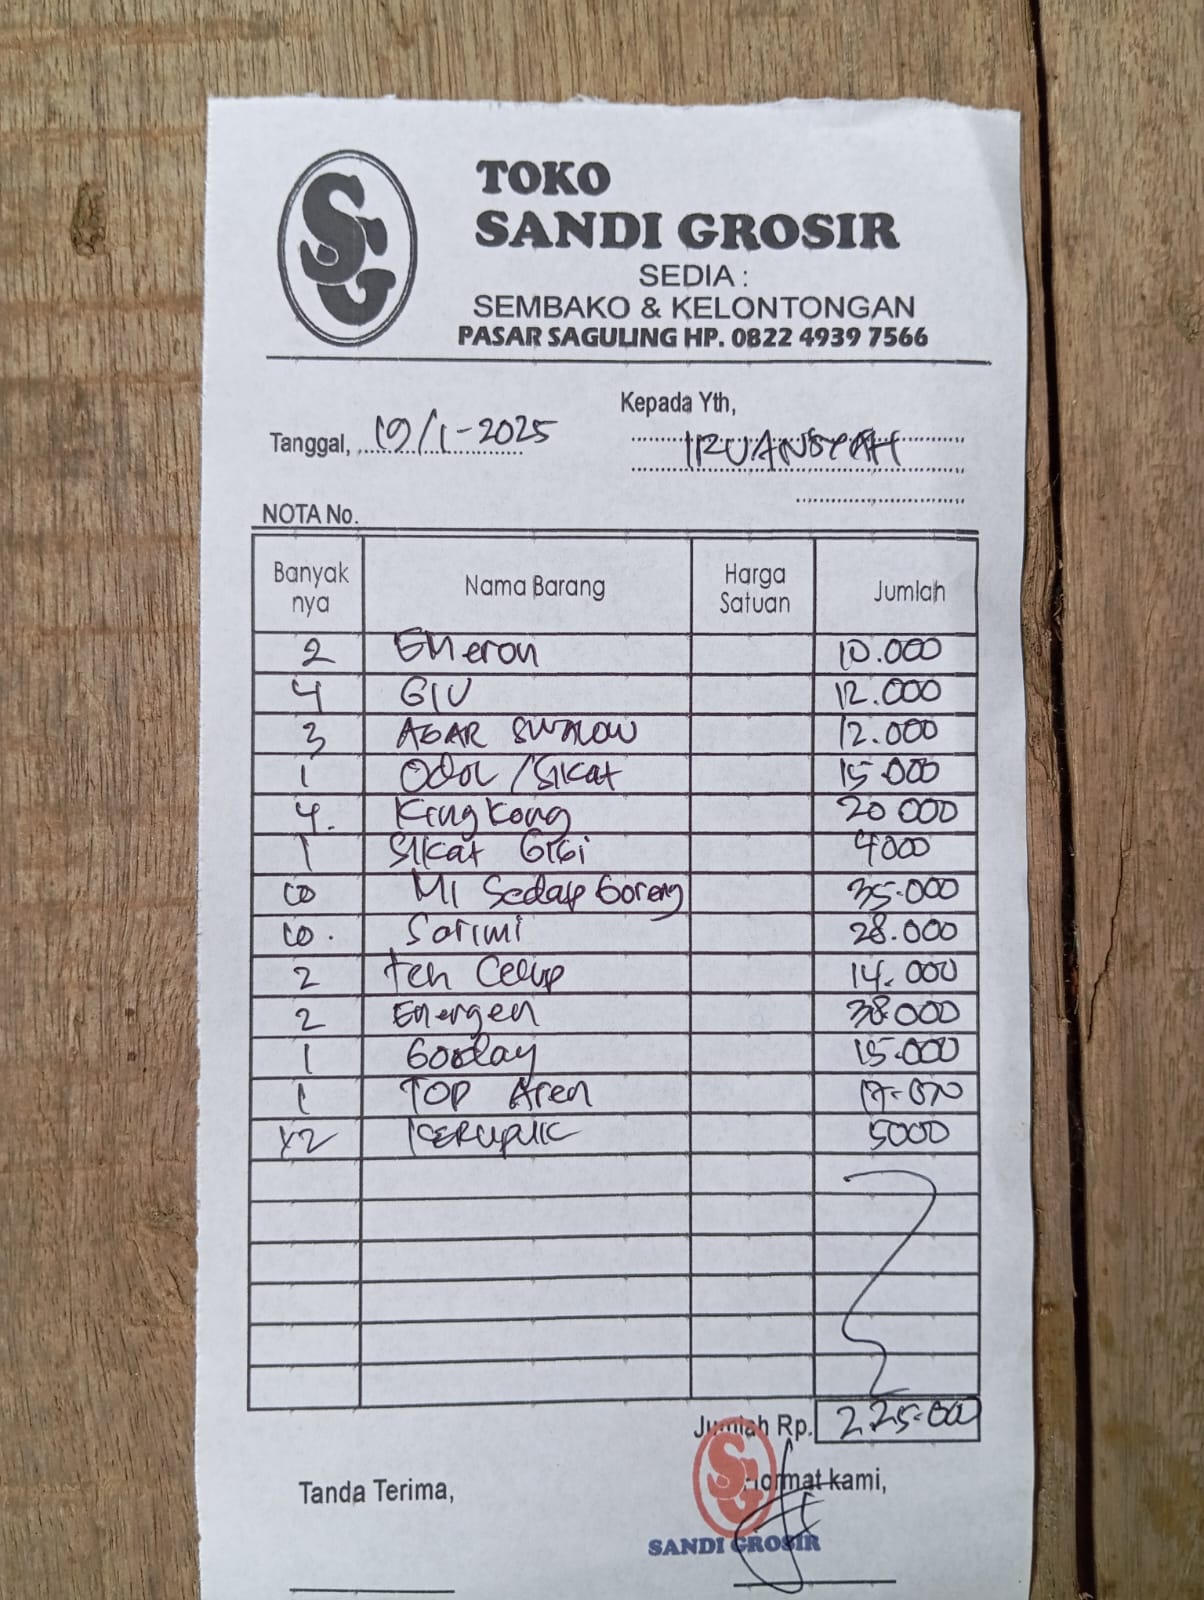 SG
TOKO
SANDI GROSIR
SEDIA :
SEMBAKO & KELONTONGAN
PASAR SAGULING HP. 0822 4939 7566
Kepada Yth,
Tanggal, 19/1-2025 IRUANSYAH
NOTA No.
Banyak nya Nama Barang Harga Satuan Jumlah
2 EMeron 10.000
4 GIU 12.000
3 AGAR SWALOW 12.000
1 Odol /Sikat 15.000
4. King Kong 20 000
1 Sikat Gigi 4000
10 MI Sedap Goreng 35.000
10. Sarimi 28.000
2 Teh Celup 14.000
2 Energen 38.000
1 Gooday 15.000
1 TOP Aren 17.000
x2 KERUPUK 5000
Jumlah Rp. 225.000
Tanda Terima, Hormat kami,
SG
SANDI GROSIR